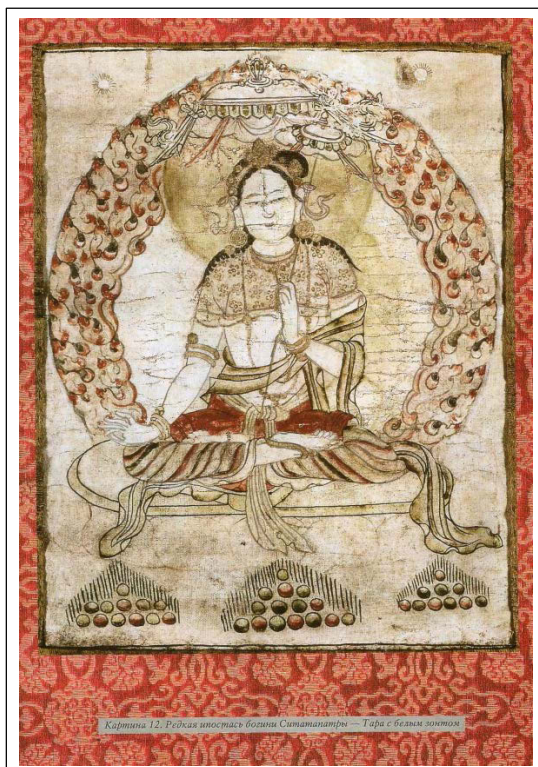 Картина 12. Редкая ипостась богини Ситатапатры — Тара с белым зонтом